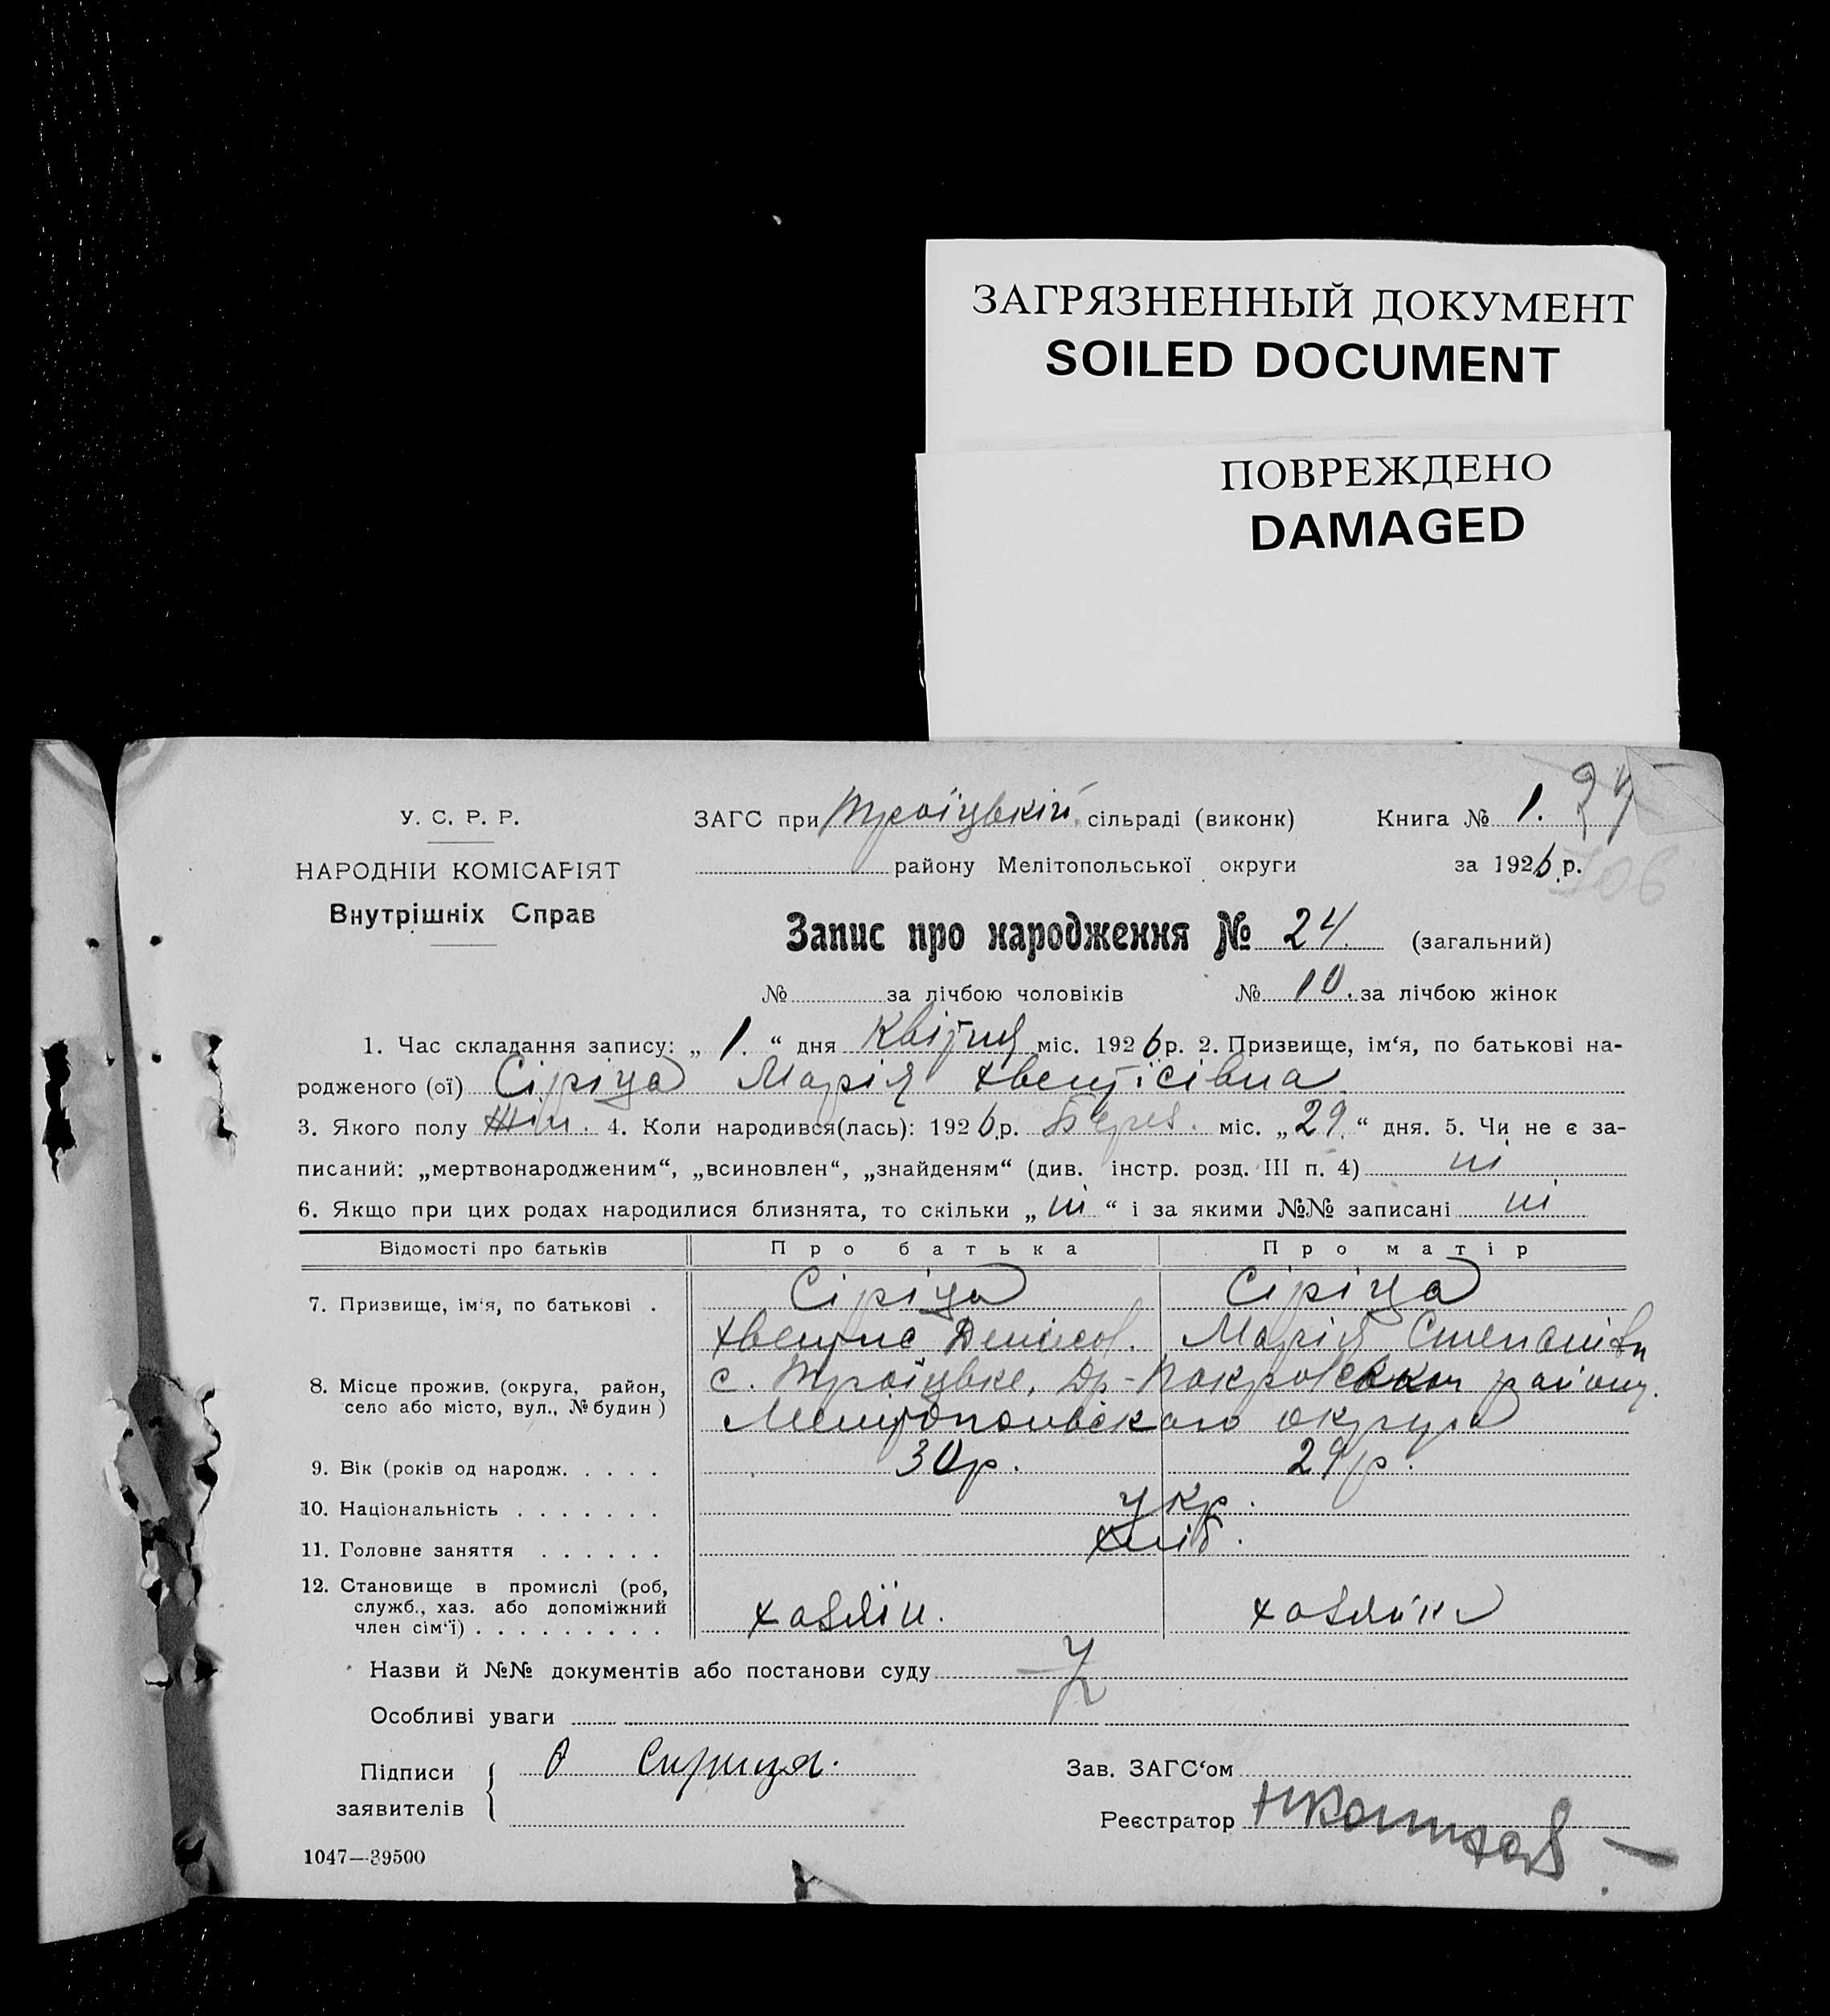 ЗАГРЯЗНЕННЫЙ ДОКУМЕНТ
SOILED DOCUMENT
ПОВРЕЖДЕНО
DAMAGED
У. С. Р. Р.
НАРОДНІЙ КОМІСАРІЯТ
Внутрішніх Справ
ЗАГС при Троїцькій сільраді (виконк) Книга № 1.
району Мелітопольської округи за 1926 р.
106
Запис про народження № 24. (загальний)
№ за лічбою чоловіків № 10. за лічбою жінок
1. Час складання запису: „ 1. “ дня Квітня міс. 1926 р. 2. Призвище, ім‘я, по батькові на-
родженого (ої) Сіріца Марія Хветісівна
3. Якого полу Жін. 4. Коли народився(лась): 1926 р. Берез. міс. „ 29 “ дня. 5. Чи не є за-
писаний: „мертвонародженим“, „всиновлен“, „знайденям“ (див. інстр. розд. III п. 4) ні
6. Якщо при цих родах народилися близнята, то скільки „ ні “ і за якими №№ записані ні
Відомості про батьків Про батька Про матір
7. Призвище, ім‘я, по батькові . Сіріца Сіріца
Денисов. Марія Степанівн
8. Місце прожив. (округа, район, село або місто, вул., № будин ) с. Троїцьке, Др-Покровском району.
Мелитопольського округа
9. Вік (років од народж. . . . . 30 р. 29 р.
10. Національність . . . . . . . Укр.
11. Головне заняття . . . . . . хліб.
12. Становище в промислі (роб, служб., хаз. або допоміжний член сім‘ї) . . . . . . . . . хазяїн. хазяйка
Назви й №№ документів або постанови суду
Особливі уваги
Підписи заявителів { Сирица.
Зав. ЗАГС‘ом
Реєстратор
1047—39500